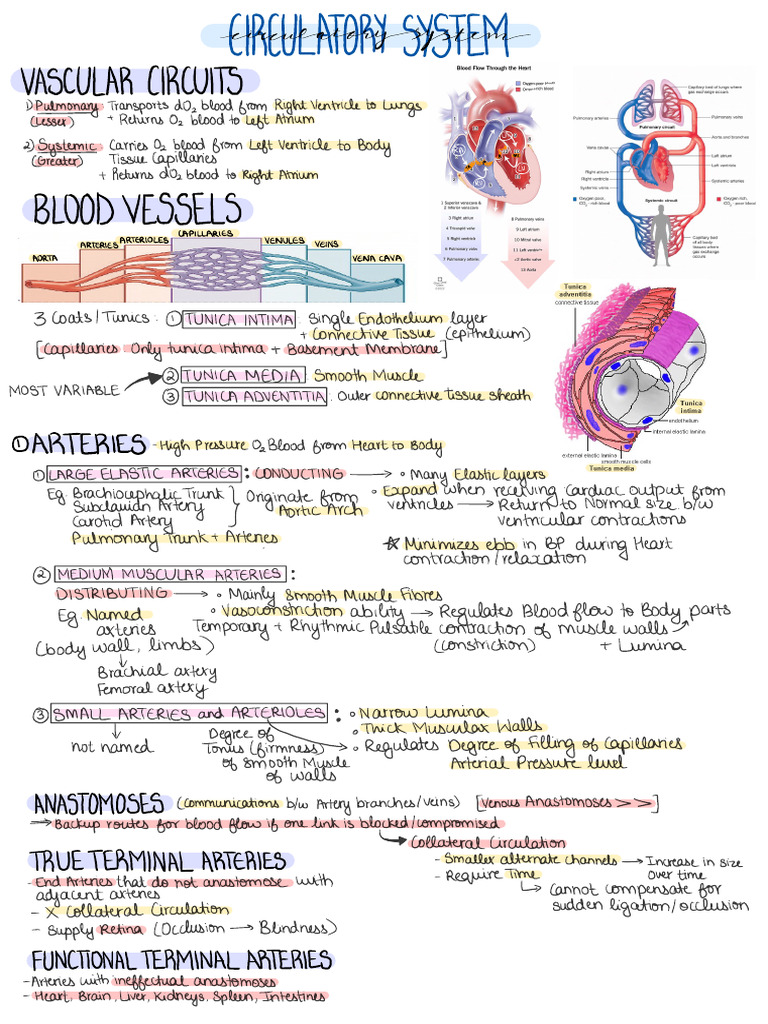 CIRCULATORY SYSTEM
circulatory system
VASCULAR CIRCUITS
1) Pulmonary Transports dO2 blood from Right Ventricle to Lungs
(Lesser) + Returns O2 blood to Left Atrium
2) Systemic Carries O2 blood from Left Ventricle to Body
(Greater) Tissue Capillaries
+ Returns dO2 blood to Right Atrium
Blood Flow Through the Heart
Oxygen-poor blood
Oxygen-rich blood
1 Superior vena cava &
2 Inferior vena cava
3 Right atrium
4 Tricuspid valve
5 Right ventricle
6 Pulmonary valve
7 Pulmonary arteries
8 Pulmonary veins
9 Left atrium
10 Mitral valve
11 Left ventricle
12 Aortic valve
13 Aorta
Capillary bed of lungs where
gas exchange occurs
Pulmonary arteries
Pulmonary veins
Pulmonary circuit
Aorta and branches
Vena cavae
Left atrium
Left ventricle
Right atrium
Right ventricle
Systemic arteries
Systemic veins
Systemic circuit
Oxygen-poor,
CO2-rich blood
Oxygen-rich,
CO2-poor blood
Capillary bed
of all body
tissues where
gas exchange
occurs
BLOOD VESSELS
AORTA
ARTERIES
ARTERIOLES
CAPILLARIES
VENULES
VEINS
VENA CAVA
3 Coats/Tunics: ① TUNICA INTIMA: Single Endothelium layer
+ Connective Tissue (epithelium)
[Capillaries: Only tunica intima + Basement Membrane]
MOST VARIABLE ② TUNICA MEDIA: Smooth Muscle
③ TUNICA ADVENTITIA: Outer connective tissue sheath
Tunica
adventitia
connective tissue
Tunica
intima
endothelium
internal elastic lamina
external elastic lamina
smooth muscle cells
Tunica media
① ARTERIES - High Pressure O2 Blood from Heart to Body
① LARGE ELASTIC ARTERIES: CONDUCTING → • Many Elastic layers
Eg. Brachiocephalic Trunk
Subclavian Artery
Carotid Artery
} Originate from
Aortic Arch
Pulmonary Trunk + Arteries
• Expand when receiving cardiac output from
ventricles → Return to Normal size b/w
ventricular contractions
☆ Minimizes ebb in BP during Heart
contraction/relaxation
② MEDIUM MUSCULAR ARTERIES:
DISTRIBUTING → • Mainly Smooth Muscle Fibres
Eg. Named
arteries
(body wall, limbs)
↓
Brachial artery
Femoral artery
• Vasoconstriction ability → Regulates Blood flow to Body parts
Temporary + Rhythmic Pulsatile contraction of muscle walls
(constriction) + Lumina
③ SMALL ARTERIES and ARTERIOLES: • Narrow Lumina
• Thick Muscular Walls
not named
Degree of
Tonus (firmness)
of Smooth Muscle
of walls
• Regulates Degree of Filling of Capillaries
Arterial Pressure level
ANASTOMOSES (communications b/w Artery branches/veins) [Venous Anastomoses >>]
→ Backup routes for blood flow if one link is blocked/compromised
→ Collateral Circulation
- Smaller alternate channels → Increase in size
over time
- Require Time
↳ Cannot compensate for
sudden ligation/occlusion
TRUE TERMINAL ARTERIES
- End Arteries that do not anastomose with
adjacent arteries
- X Collateral Circulation
- Supply Retina (Occlusion → Blindness)
FUNCTIONAL TERMINAL ARTERIES
- Arteries with ineffectual anastomoses
- Heart, Brain, Liver, Kidneys, Spleen, Intestines